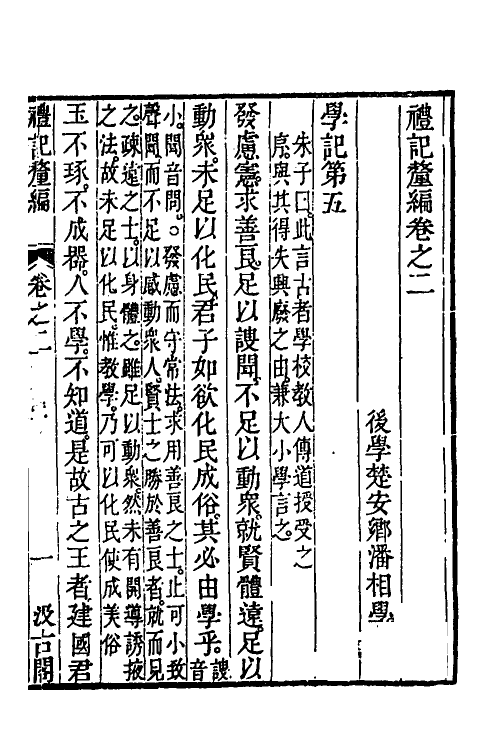 禮記釐編卷之二
後學楚安鄉潘相學
學記第五
朱子曰。此言古者學校教人傳道授受之
序。與其得失興廢之由。兼大小學言之。
發慮憲。求善良。足以謏聞。不足以動衆。就賢體遠。足以
動衆。未足以化民。君子如欲化民成俗。其必由學乎。謏音
小。聞音問。○發慮而守常法。求用善良之士。止可小致
聲聞。而不足以感動衆人。賢士之勝於善良者。就而見
之。疎遠之士。以身體之。雖足以動衆。然未有開導誘掖
之法。故未足以化民。惟教學。乃可以化民使成美俗
玉不琢。不成器。人不學。不知道。是故古之王者建國君
禮記釐編 卷之二 一 汲古閣